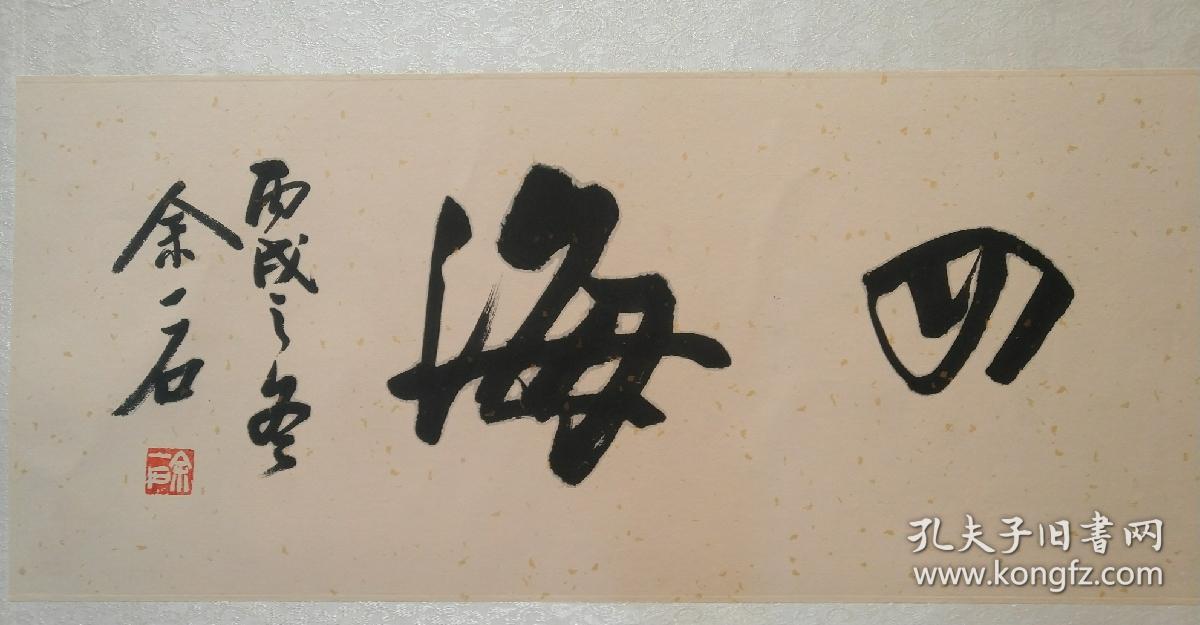 四海
丙戌之冬
余一石
余一石
孔夫子旧书网
www.kongfz.com